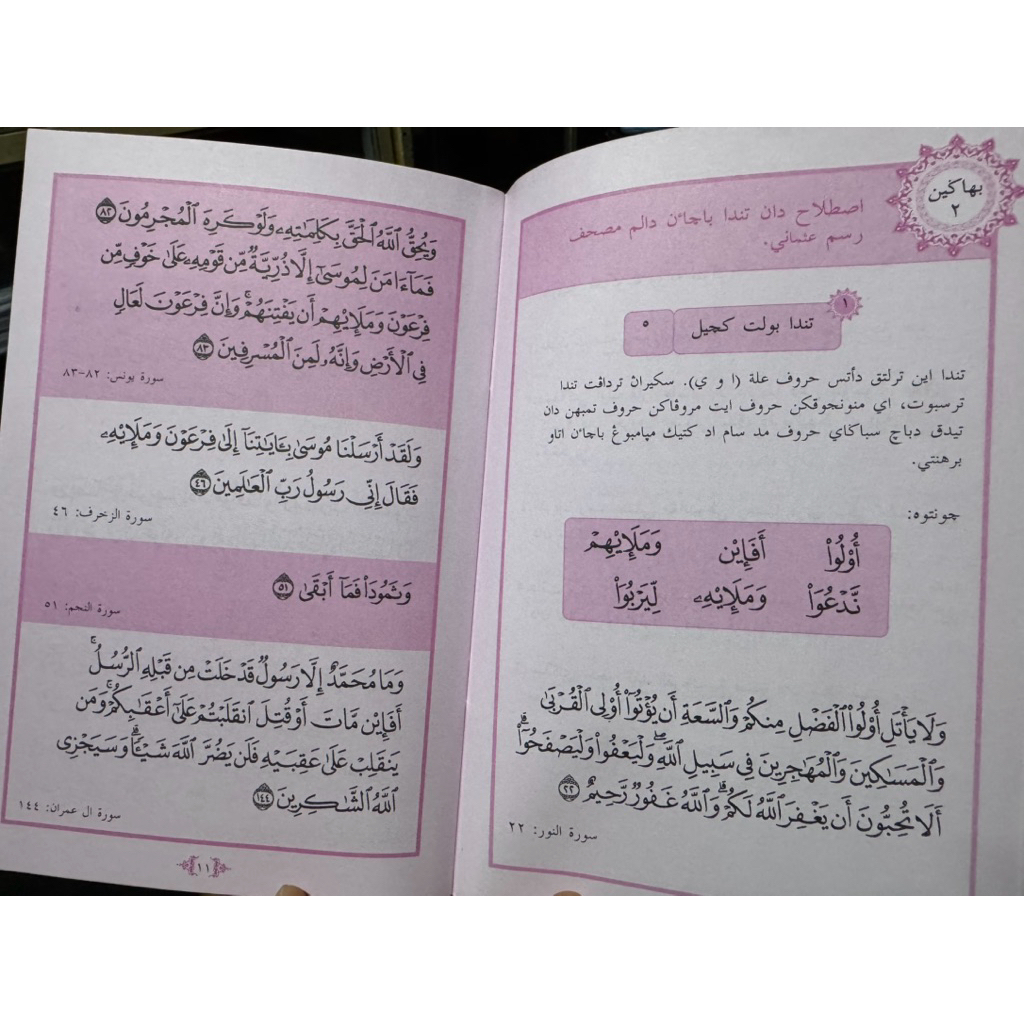 بهاڬين
٢
اصطلاح دان تندا باچاءن دالم مصحف
رسم عثماني.
١
تندا بولت كچيل ه
تندا اين ترلتق دأتس حروف علة (ا و ي). سكيراڽ تردڤت تندا
ترسبوت، اي منونجوقكن حروف ايت مروڤاكن حروف تمبهن دان
تيدق دباچ سباڬاي حروف مد سام اد كتيك مڽامبوڠ باچاءن اتاو
برهنتي.
چونتوه:
أُوْلُواْ أَفَإِيْن وَمَلَإِيْهِمْ
نَّدْعُوَاْ وَمَلَإِيْهِۦ لِّيَرْبُوَاْ
وَلَا يَأْتَلِ أُوْلُواْ الْفَضْلِ مِنكُمْ وَالسَّعَةِ أَن يُؤْتُوٓاْ أُوْلِي الْقُرْبَىٰ
وَالْمَسَٰكِينَ وَالْمُهَٰجِرِينَ فِي سَبِيلِ اللَّهِ ۖ وَلْيَعْفُواْ وَلْيَصْفَحُوٓاْ ۗ
أَلَا تُحِبُّونَ أَن يَغْفِرَ اللَّهُ لَكُمْ ۗ وَاللَّهُ غَفُورٌ رَّحِيمٌ ٢٢
سورة النور: ٢٢
وَيُحِقُّ اللَّهُ الْحَقَّ بِكَلِمَٰتِهِۦ وَلَوْ كَرِهَ الْمُجْرِمُونَ ٨٢
فَمَآ ءَامَنَ لِمُوسَىٰٓ إِلَّا ذُرِّيَّةٌ مِّن قَوْمِهِۦ عَلَىٰ خَوْفٍ مِّن
فِرْعَوْنَ وَمَلَإِيْهِمْ أَن يَفْتِنَهُمْ ۚ وَإِنَّ فِرْعَوْنَ لَعَالٍ
فِي الْأَرْضِ وَإِنَّهُۥ لَمِنَ الْمُسْرِفِينَ ٨٣
سورة يونس: ٨٢-٨٣
وَلَقَدْ أَرْسَلْنَا مُوسَىٰ بِـَٔايَٰتِنَآ إِلَىٰ فِرْعَوْنَ وَمَلَإِيْهِۦ
فَقَالَ إِنِّي رَسُولُ رَبِّ الْعَٰلَمِينَ ٤٦
سورة الزخرف: ٤٦
وَثَمُودَاْ فَمَآ أَبْقَىٰ ٥١
سورة النجم: ٥١
وَمَا مُحَمَّدٌ إِلَّا رَسُولٌ قَدْ خَلَتْ مِن قَبْلِهِ الرُّسُلُ ۚ
أَفَإِيْن مَّاتَ أَوْ قُتِلَ انقَلَبْتُمْ عَلَىٰٓ أَعْقَٰبِكُمْ ۚ وَمَن
يَنقَلِبْ عَلَىٰ عَقِبَيْهِ فَلَن يَضُرَّ اللَّهَ شَيْـًٔا ۗ وَسَيَجْزِي
اللَّهُ الشَّٰكِرِينَ ١٤٤
سورة ال عمران: ١٤٤
١١